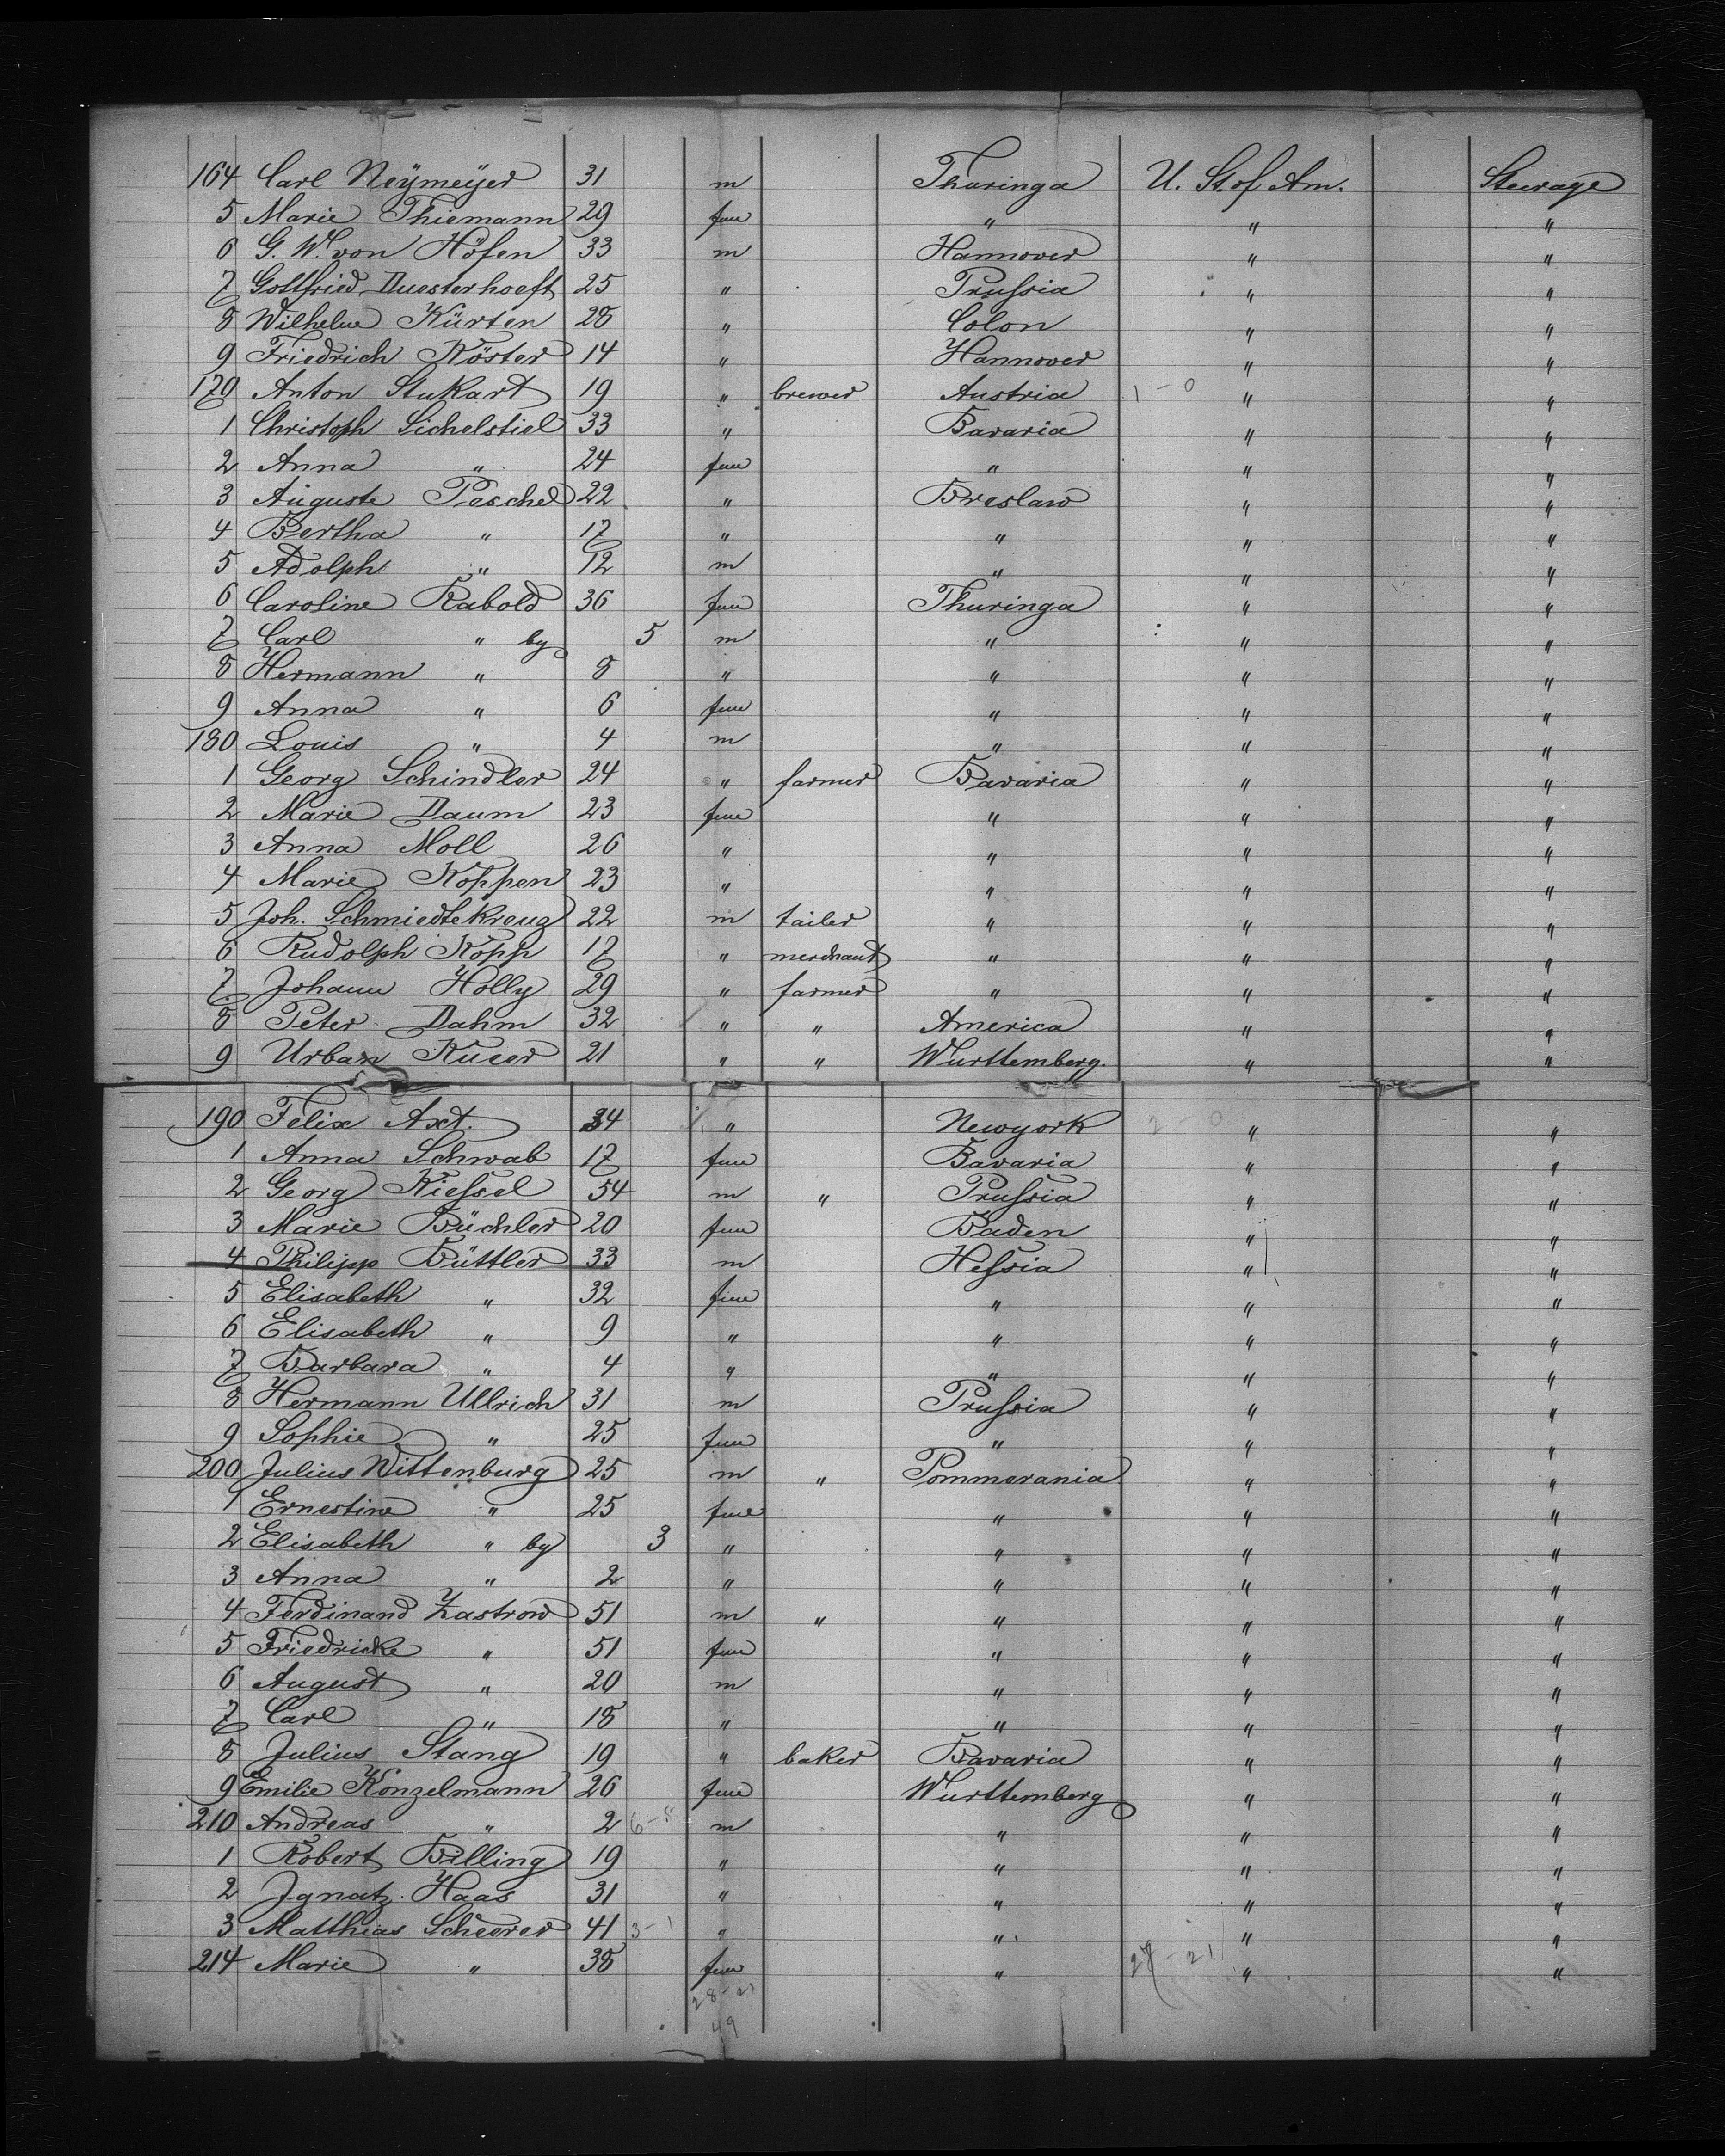 164 Carl Neÿmeÿer 31 m Thuringa U. St. of Am. Steerage
5 Marie Thiemann 29 fme " " "
6 G. W. von Höfen 33 m Hannover " "
7 Gottfried Duesterhoeft 25 " Prussia " "
8 Wilhelm Kürten 28 " Coln " "
9 Friedrich Köster 14 " Hannover " "
170 Anton Stukart 19 " brewer Austria 1-0 " "
1 Christoph Sichelstiel 33 " Bavaria " "
2 Anna " 24 fme " " "
3 Auguste Paschel 22 " Breslaw " "
4 Bertha " 17 " " " "
5 Adolph " 12 m " " "
6 Caroline Rabold 36 fme Thuringa " "
7 Carl " by 5 m " " "
8 Hermann " 8 " " " "
9 Anna " 6 fme " " "
180 Louis " 4 m " " "
1 Georg Schindler 24 " farmer Bavaria " "
2 Marie Daum 23 fme " " "
3 Anna Moll 26 " " " "
4 Marie Koppen 23 " " " "
5 Joh. Schmiedtekreuz 22 m tailer " " "
6 Rudolph Kopp 17 " merchant " " "
7 Johann Holly 29 " farmer " " "
8 Peter Dahm 32 " " America " "
9 Urban Kueer 21 " " Wurttemberg. " "
190 Felix Axt. 34 " Newyork 2-0 " "
1 Anna Schwab 17 fme Bavaria " "
2 Georg Kiessel 54 m " Prussia " "
3 Marie Büchler 20 fme Baden " "
4 Philipp Büttler 33 m Hessia " "
5 Elisabeth " 32 fme " " "
6 Elisabeth " 9 " " " "
7 Barbara " 4 " " " "
8 Hermann Ullrich 31 m Prussia " "
9 Sophie " 25 fme " " "
200 Julius Wittenburg 25 m " Pommerania " "
1 Ernestine " 25 fme " " "
2 Elisabeth " by 3 " " " "
3 Anna " 2 " " " "
4 Ferdinand Zastrow 51 m " " " "
5 Friedricke " 51 fme " " "
6 August " 20 m " " "
7 Carl " 18 " " " "
8 Julius Stang 19 " baker Bavaria " "
9 Emilie Konzelmann 26 fme Wurttemberg " "
210 Andreas " 2 m " " "
1 Robert Billing 19 " " " "
2 Ignatz Haas 31 " " " "
3 Matthias Scheerer 41 3-1 " " " "
214 Marie " 38 fme " 27-21 " "
28-21
49